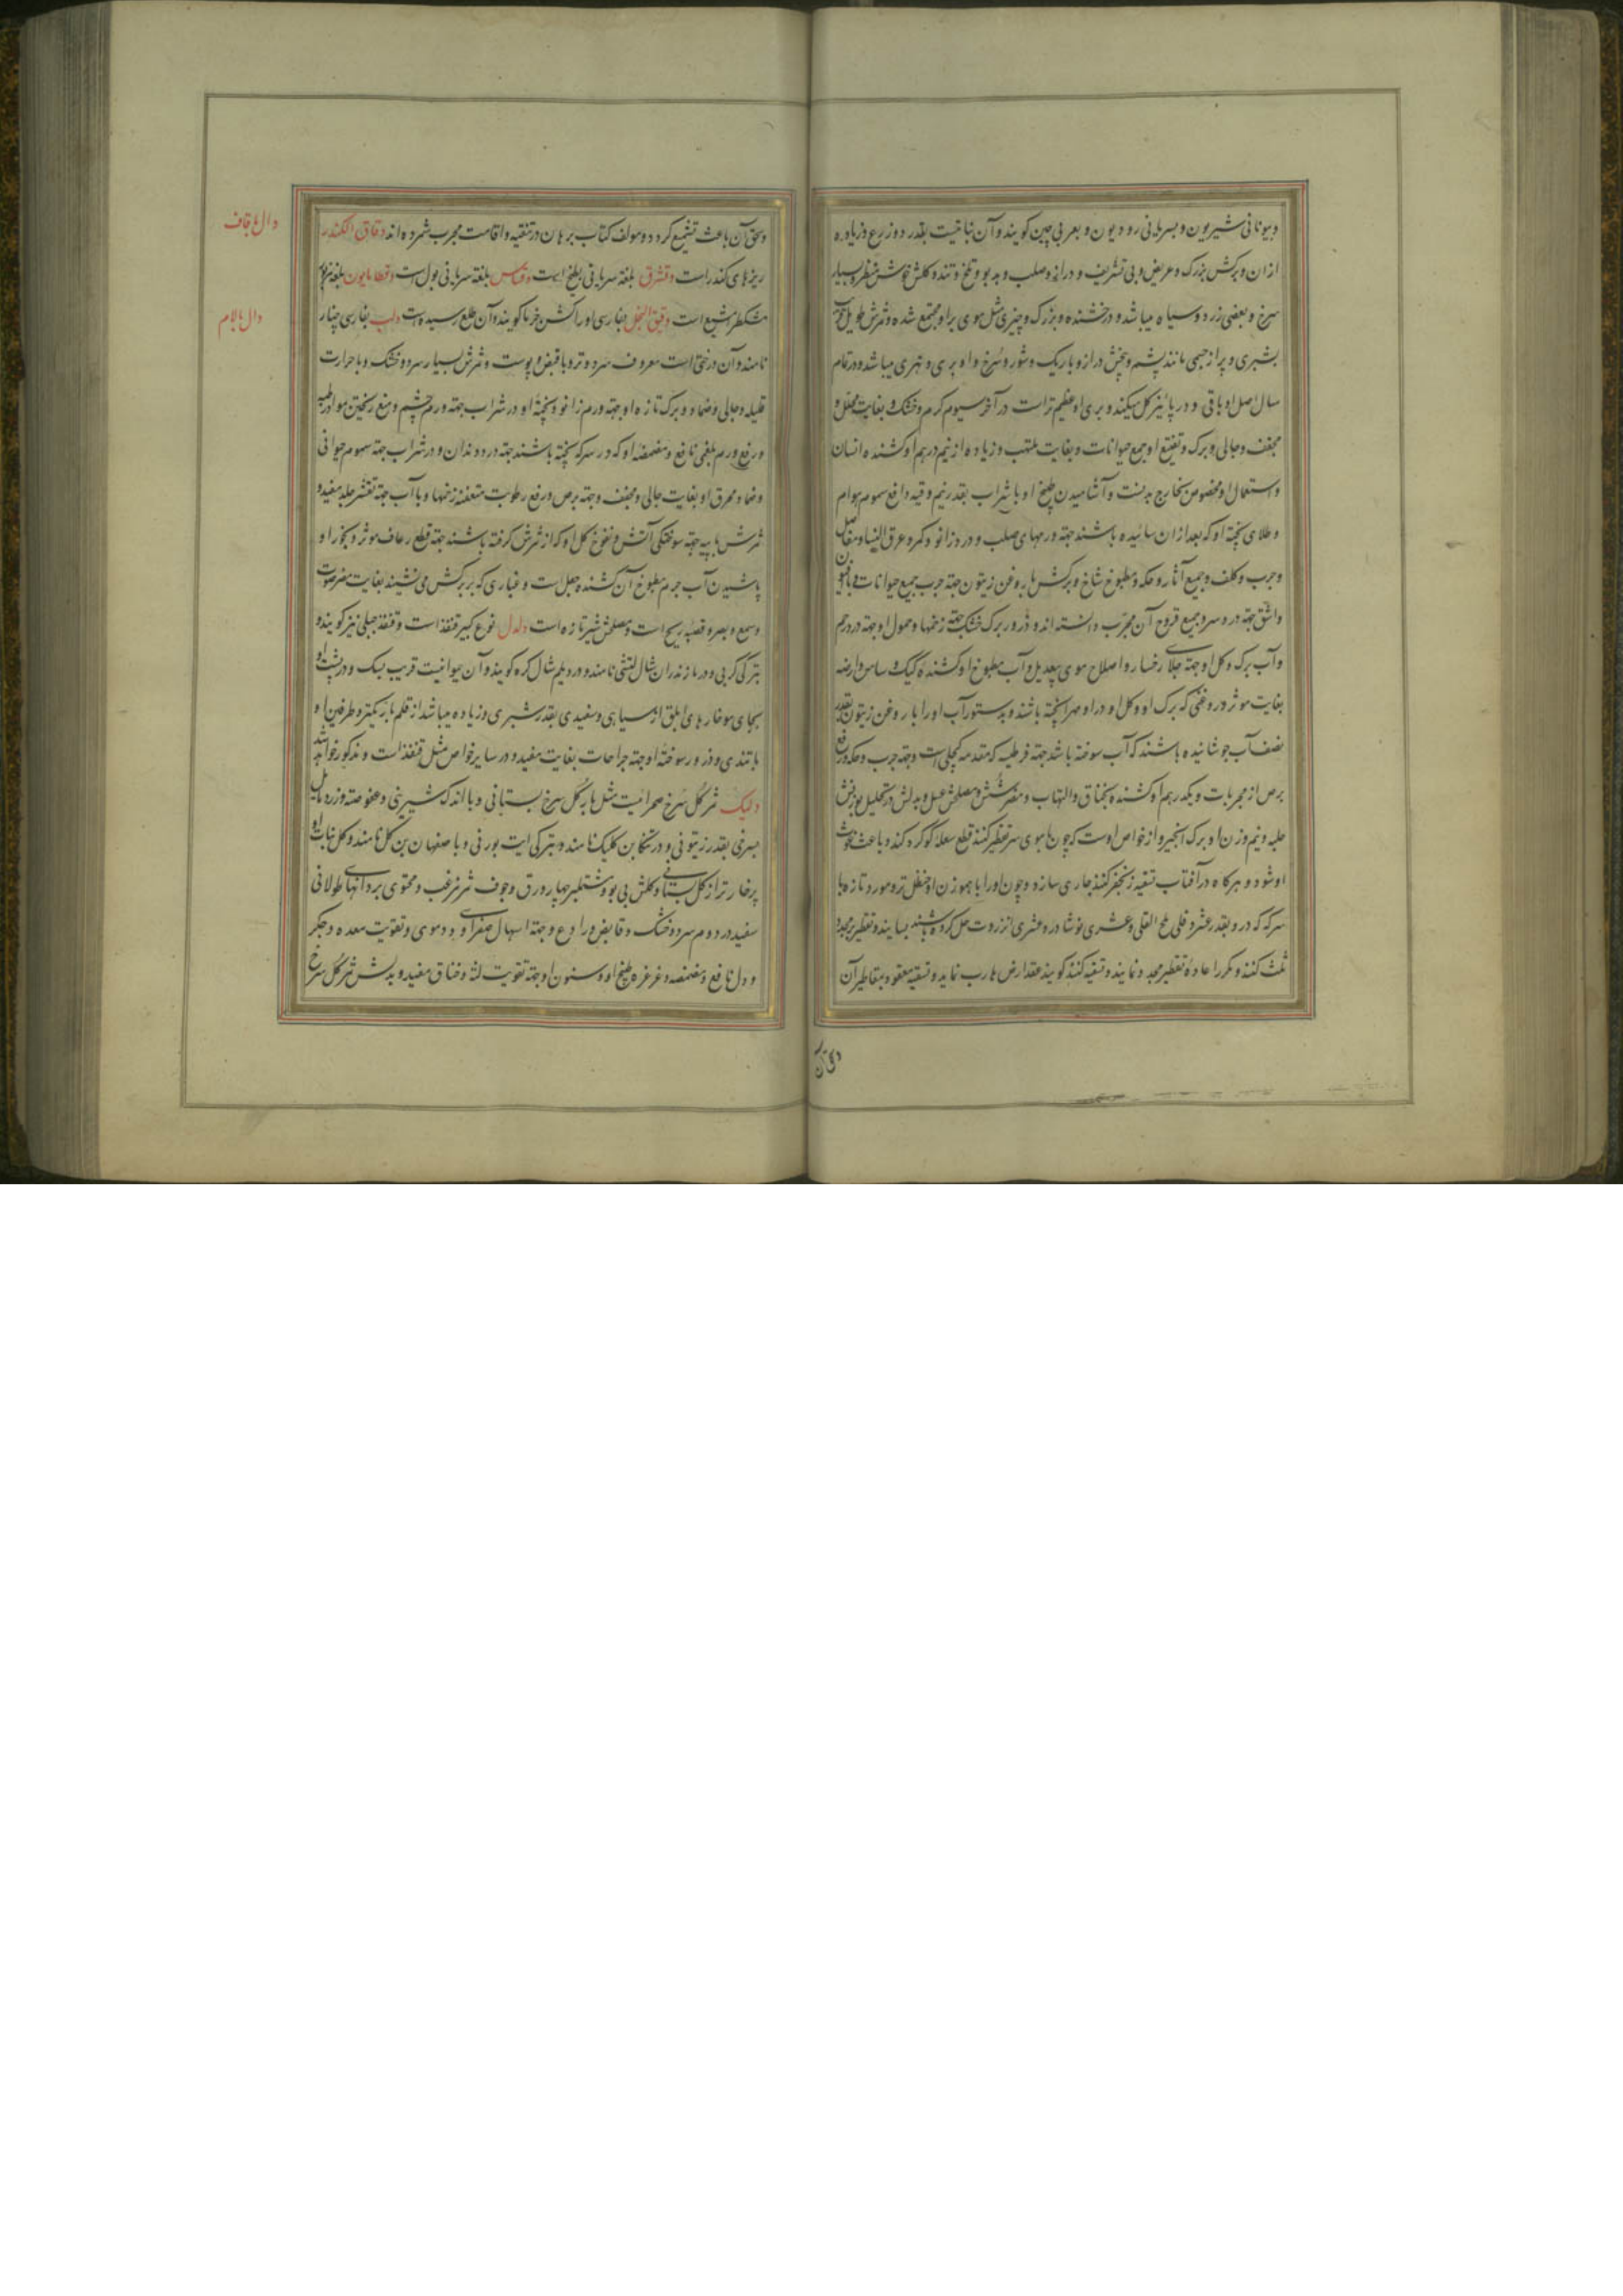 و بیونانی شیریون و بسریانی رودیون و بعربی چین کویند و آن نباتیست بقدر دو زرع و زیاده
از ان و برکش بزرک و عریض و بی تشریف و دراز و صلب و بدبو و تلخ و تند و کلش خوش منظر و بسیار
سرخ و بعضی زرد و سیاه میباشد و درخشنده و بزرک و چیزی مثل موی براو مجتمع شده و ثمرش طویل
بشبری و پر از جسمی مانند پشم و بیخش دراز و باریک و شور و سرخ و او بری و نهری میباشد و در تمام
سال اصل او باقی و در پائیز کل میکند و بری او عظیم تر است در آخر سیوم کرم و خشک و بغایت محلل و
مجفف و جالی و برک و تفتیح او جمیع حیوانات و بغایت ملتهب و زیاده از نیم درهم او کشنده انسان
و استعمال او مخصوص بخارج بدنست و آشامیدن طبیخ او با شراب بقدر نیم وقیه دافع سموم هوام
و طلای پخته او که بعد از ان سائیده باشند جهة ورمهای صلب و درد زانو و کمر و عرق النسا و مفاصل
و جرب و کلف و جمیع آثار و حکه و مطبوخ شاخ و برکش با روغن زیتون جهة جرب جمیع حیوانات و با افیون
و اشق جهة درد سر و جمیع قروح آن مجرب دانسته اند و ذرور برک خشک جهة زخمها و حمول او جهة درد رحم
و آب برک و کل او جهة جلای رخسار و اصلاح موی بیعدیل و آب مطبوخ او کشنده کیک و ساس و ارضه
بغایت موثر و روغنی که برک او و کل او در او مهرا پخته باشند و بدستور آب او را با روغن زیتون بقدر
نصف آب جوشانیده باشند که آب سوخته باشد جهة قرطبه که مقدمه کچلی است و جهة جرب و حکه و رفع
برص از مجربات و یکدرهم او کشنده بخناق و التهاب و مضر شش و مصلحش عسل و بدلش در تحلیل بوزنش
حلبه و نیم وزن او برک انجیر و از خواص اوست که چون با موی سر تقطیر کنند قطع شعله کوکرد کند و باعث
او شود و هرکاه در آفتاب تسقیه زنجفر کنند جاری سازد و چون او را با هموزن او حنظل تر و مورد تازه با
سرکه که در و بقدر عشر وقلی ملح القلی و عشری نوشادر و عشری انزروت حل کرده باشند بسایند و تقطیر مجدد
ثلث کنند و مکرر اعاده تقطیر مجدد نمایند و تسقیه کنند کویند مقدار ض هارب نماید و تسقیه معقود بمقاطیر آن
و بحق آن باعث تشمیع کردد و مولف کتاب برهان در تنقیه و اقامت مجرب شمرده اند دقاق الکندر
ریزهای کندر است دقشرق بلغة سریانی بطیخ است دقناس بلغة سریانی بول است دقطامایون بلغة
مشکطرامشیع است دقیق النخل بفارسی او را کشن خرما کویند و آن طلع رسیده است دلب بفارسی چنار
نامند و آن درختی است معروف سرد و تر و با قبض و پوست و ثمرش بسیار سرد و خشک و با حرارت
قلیله و جالی و ضماد و برک تازه او جهة ورم زانو و پخته او در شراب جهة ورم چشم و منع ریختن مواد بآن
و رفع ورم بلغمی نافع و مضمضه او که در سرکه پخته باشند جهة درد دندان و در شراب جهة سموم حیوانی
و ضماد محرق او بغایت جالی و مجفف و جهة برص و رفع رطوبت متعفنه زخمها و با آب جهة تقشر جلد مفید و
ثمرش با پیه جهة سوختکی آتش و نفوخ کل او که از ثمرش کرفته باشند جهة قطع رعاف موثر و بخور او و
پاشیدن آب جرم مطبوخ آن کشنده جعل است و غباری که بر برکش می نشیند بغایت مضر صوت
و سمع و بصر و قصبه ریه است و مصلحش شیر تازه است دلدل نوع کبیر قنفذ است و قنفذ جبلی نیز کویند و
بترکی کرپی و در مازندران شال تشی نامند و در دیلم شال کره کویند و آن حیوانیست قریب بسک و در پشت او
بجای مو خارهای ابلق از سیاهی و سفیدی بقدر شبری و زیاده میباشد از قلم باریکتر و طرفین او
با تندی و ذرور سوخته او جهة جراحات بغایت مفید و در سایر خواص مثل قنفذ است و مذکور خواهد شد
دلیک ثمر کل سرخ صحرائیست مثل بار کل سرخ بستانی و با اندک شیرینی و عفوصت و زرد مایل
بسرخی بقدر زیتونی و در تنکابن کلیک نامند و بترکی ایت بورنی و باصفهان بن کل نامند و کل نبات او
پرخارتر از کل بستانی و کلش بی بو و مشتمل بر چهار ورق و جوف ثمر مزغب و محتوی بر دانهای طولانی
سفید در دوم سرد و خشک و قابض و رادع و جهة اسهال صفراوی و دموی و تقویت معده و جکر
و دل نافع و مضمضه و غرغره طبیخ او و سنون او جهة تقویت لثه و خناق مفید و بدلش ثمر کل سرخ
دال با قاف
دال با لام